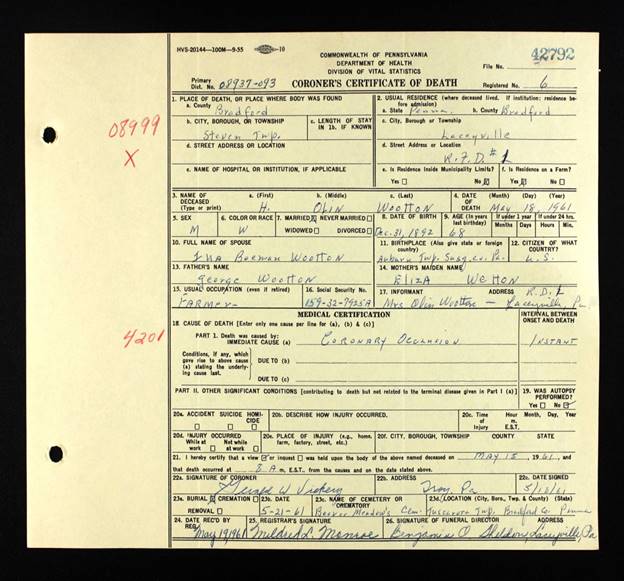 HVS-20144—100M—9-55 10
COMMONWEALTH OF PENNSYLVANIA
DEPARTMENT OF HEALTH
DIVISION OF VITAL STATISTICS
CORONER'S CERTIFICATE OF DEATH
File No. 42792
Primary Dist. No. 08937-093
Registered No. 6
1. PLACE OF DEATH, OR PLACE WHERE BODY WAS FOUND
a. County Bradford
b. CITY, BOROUGH, OR TOWNSHIP Steven Twp.
c. LENGTH OF STAY IN 1b. IF KNOWN
d. STREET ADDRESS OR LOCATION
e. NAME OF HOSPITAL OR INSTITUTION, IF APPLICABLE
2. USUAL RESIDENCE (where deceased lived. If institution: residence before admission)
a. State Penna. b. County Bradford
c. City, Borough or Township Laceyville
d. Street Address or Location R.F.D. #1
e. Is Residence Inside Municipality Limits? Yes No
f. Is Residence on a Farm? Yes No
08999
X
3. NAME OF DECEASED (Type or print) a. (First) H. b. (Middle) Olin c. (Last) Wootton
4. DATE OF DEATH (Month) (Day) (Year) May 18, 1961
5. SEX M
6. COLOR OR RACE W
7. MARRIED NEVER MARRIED WIDOWED DIVORCED
8. DATE OF BIRTH Dec. 31, 1892
9. AGE (In years last birthday) 68
If under 1 year Months Days
If under 24 hrs. Hours Min.
10. FULL NAME OF SPOUSE Wootton
11. BIRTHPLACE (Also give state or foreign country) Auburn Twp. Susq. Co. Pa.
12. CITIZEN OF WHAT COUNTRY? U.S.
13. FATHER'S NAME George Wootton
14. MOTHER'S MAIDEN NAME Eliza
15. USUAL OCCUPATION (even if retired) Farmer
16. Social Security No. 159-32-7925A
17. INFORMANT ADDRESS R.D. 1
Mrs Olin Wootton — Laceyville, Pa
MEDICAL CERTIFICATION
4201
18. CAUSE OF DEATH [Enter only one cause per line for (a), (b) & (c)]
INTERVAL BETWEEN ONSET AND DEATH
PART 1. Death was caused by: IMMEDIATE CAUSE (a) Coronary Occlusion Instant
Conditions, if any, which gave rise to above cause (a) stating the underlying cause last.
DUE TO (b)
DUE TO (c)
PART II. OTHER SIGNIFICANT CONDITIONS [contributing to death but not related to the terminal disease given in Part I (a)]
19. WAS AUTOPSY PERFORMED? Yes No
20a. ACCIDENT SUICIDE HOMICIDE
20b. DESCRIBE HOW INJURY OCCURRED.
20c. Time of Injury Hour m. E.S.T. Month, Day, Year
20d. INJURY OCCURRED While at work Not while at work
20e. PLACE OF INJURY (e.g., home, farm, factory, street, etc.)
20f. CITY, BOROUGH, TOWNSHIP COUNTY STATE
21. I hereby certify that a view or inquest was held upon the body of the above named deceased on May 18, 1961,
and that death occurred at 8 A m. E.S.T., from the causes and on the date stated above.
22a. SIGNATURE OF CORONER Gerald W. Vickery
22b. ADDRESS Troy, Pa
22c. DATE SIGNED
23a. BURIAL CREMATION REMOVAL
23b. DATE 5-21-61
23c. NAME OF CEMETERY or CREMATORY Beaver Meadows Cem.
23d. LOCATION (City, Boro, Twp. & County) (State) Tuscarora Twp. Bradford Co. Penna
24. DATE REC'D BY REG. May 19, 1961
25. REGISTRAR'S SIGNATURE Mildred L. Monroe
26. SIGNATURE OF FUNERAL DIRECTOR ADDRESS Benjamin O. Sheldon, Laceyville, Pa